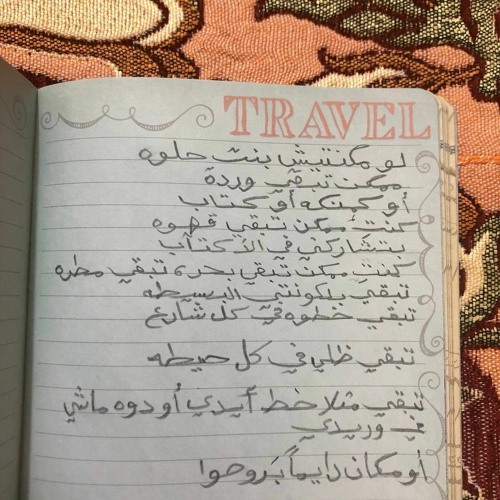 TRAVEL
لو مكنتيش بنت حلوه
ممكن تبقي وردة
أو كمنكه أو كتاب
كنت ممكن تبقي قهوه
بتشاركني في الاكتئاب
كنتي ممكن تبقي بحر، تبقي مطره
تبقي بلكونتي البسيطه
تبقي خطوه في كل شارع
تبقي ظلي في كل حيطه
تبقي مثلا خط أيدي أو دوه ماشي
في وريدي
أو مكان دايماً بَروحوا